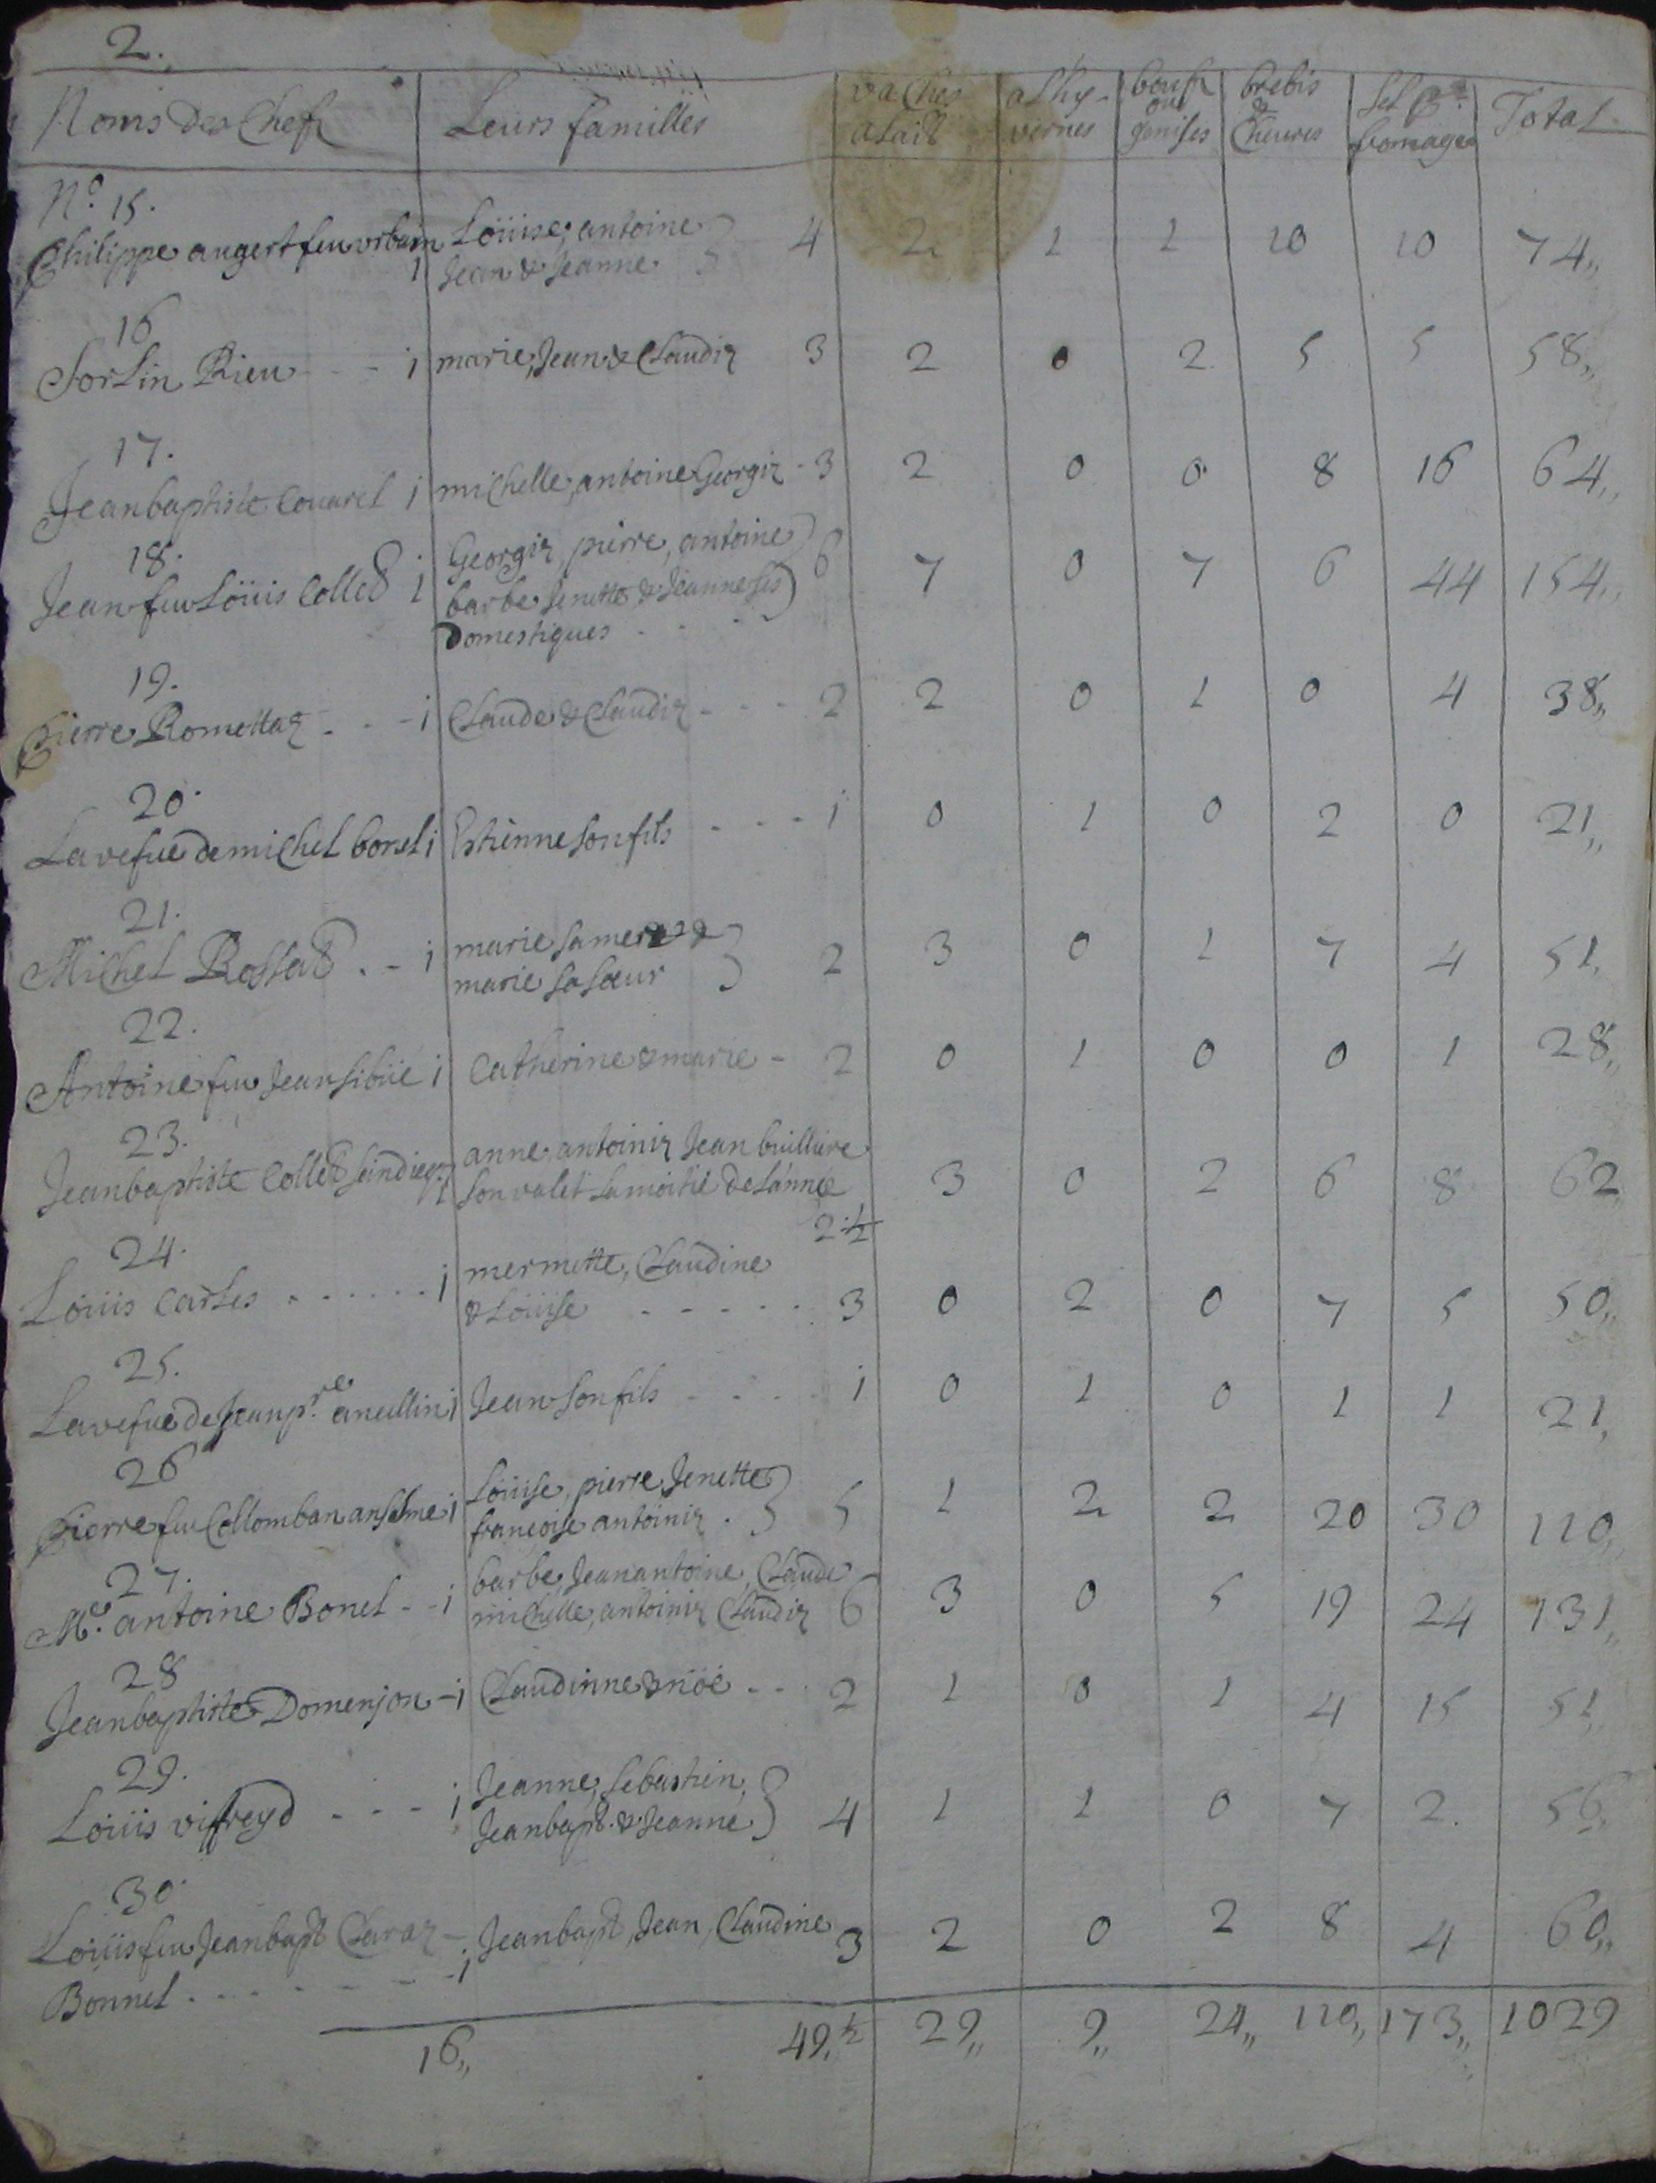 2.
Noms des Chefs Leurs familles vaches alait alhyvernes boeufs ou genises brebis & cheures sel pr. fromages Total
No. 15.
Philippe augert feu urbain 1 Loüise, antoine Jean & Jeanne 4 2 1 1 10 10 74,,
16
Sorlin Rieu - - - 1 marie, Jean & Claudiz 3 2 0 2 5 5 58,,
17.
Jeanbaptiste Couarel 1 michelle, antoine Georgiz - 3 2 0 0 8 16 64,,
18.
Jean feu Loüis Collet 1 Georgiz, pierre, antoine
barbe Jenette & Jeanne ses 6 7 0 7 6 44 154,,
Domestiques - - -
19.
Pierre Romettaz - - - 1 Claude & Claudiz - - - 2 2 0 1 0 4 38,,
20.
La vefue de michel borel 1 Estienne son fils - - - 1 0 1 0 2 0 21,,
21.
Michel Rossat . - 1 marie sa mere &
marie sa soeur 2 3 0 1 7 4 51,
22.
Antoine feu Jean sibüe 1 Catherine & marie - 2 0 1 0 0 1 28,,
23.
Jeanbaptiste Collet sindicq. 1 anne antoiniz Jean buillure
son valet la moitié de l'année 3 0 2 6 8 62
2 ½
24.
Loüis Carles . - - - - 1 mermette, Claudine
& Loüise - - - - - 3 0 2 0 7 5 50,,
25.
La vefue de Jean p.re aneullin 1 Jean son fils - - - - 1 0 1 0 1 1 21,
26
Pierre feu Collomban anselme 1 Loüise, pierre, Jenette
francoise antoiniz . 5 1 2 2 20 30 110,,
27.
Me. antoine Bonel - - 1 barbe, Jean antoine, Claude
michelle, antoiniz Claudiz 6 3 0 5 19 24 131,,
28
Jeanbaptiste Domenjon - 1 Claudinne & nöé - - - 2 1 0 1 4 15 51,,
29.
Loüis viffreyd - - - 1 Jeanne, sebastien,
Jeanbapt. & Jeanne 4 1 1 0 7 2. 56,,
30.
Loüis feu Jeanbapt Claraz - Jeanbapt, Jean, Claudine 3 2 0 2 8 4 60,,
Bonnel . - - - - - - 1
16,, 49,½ 29,, 9,, 24,, 110,, 173,, 1029